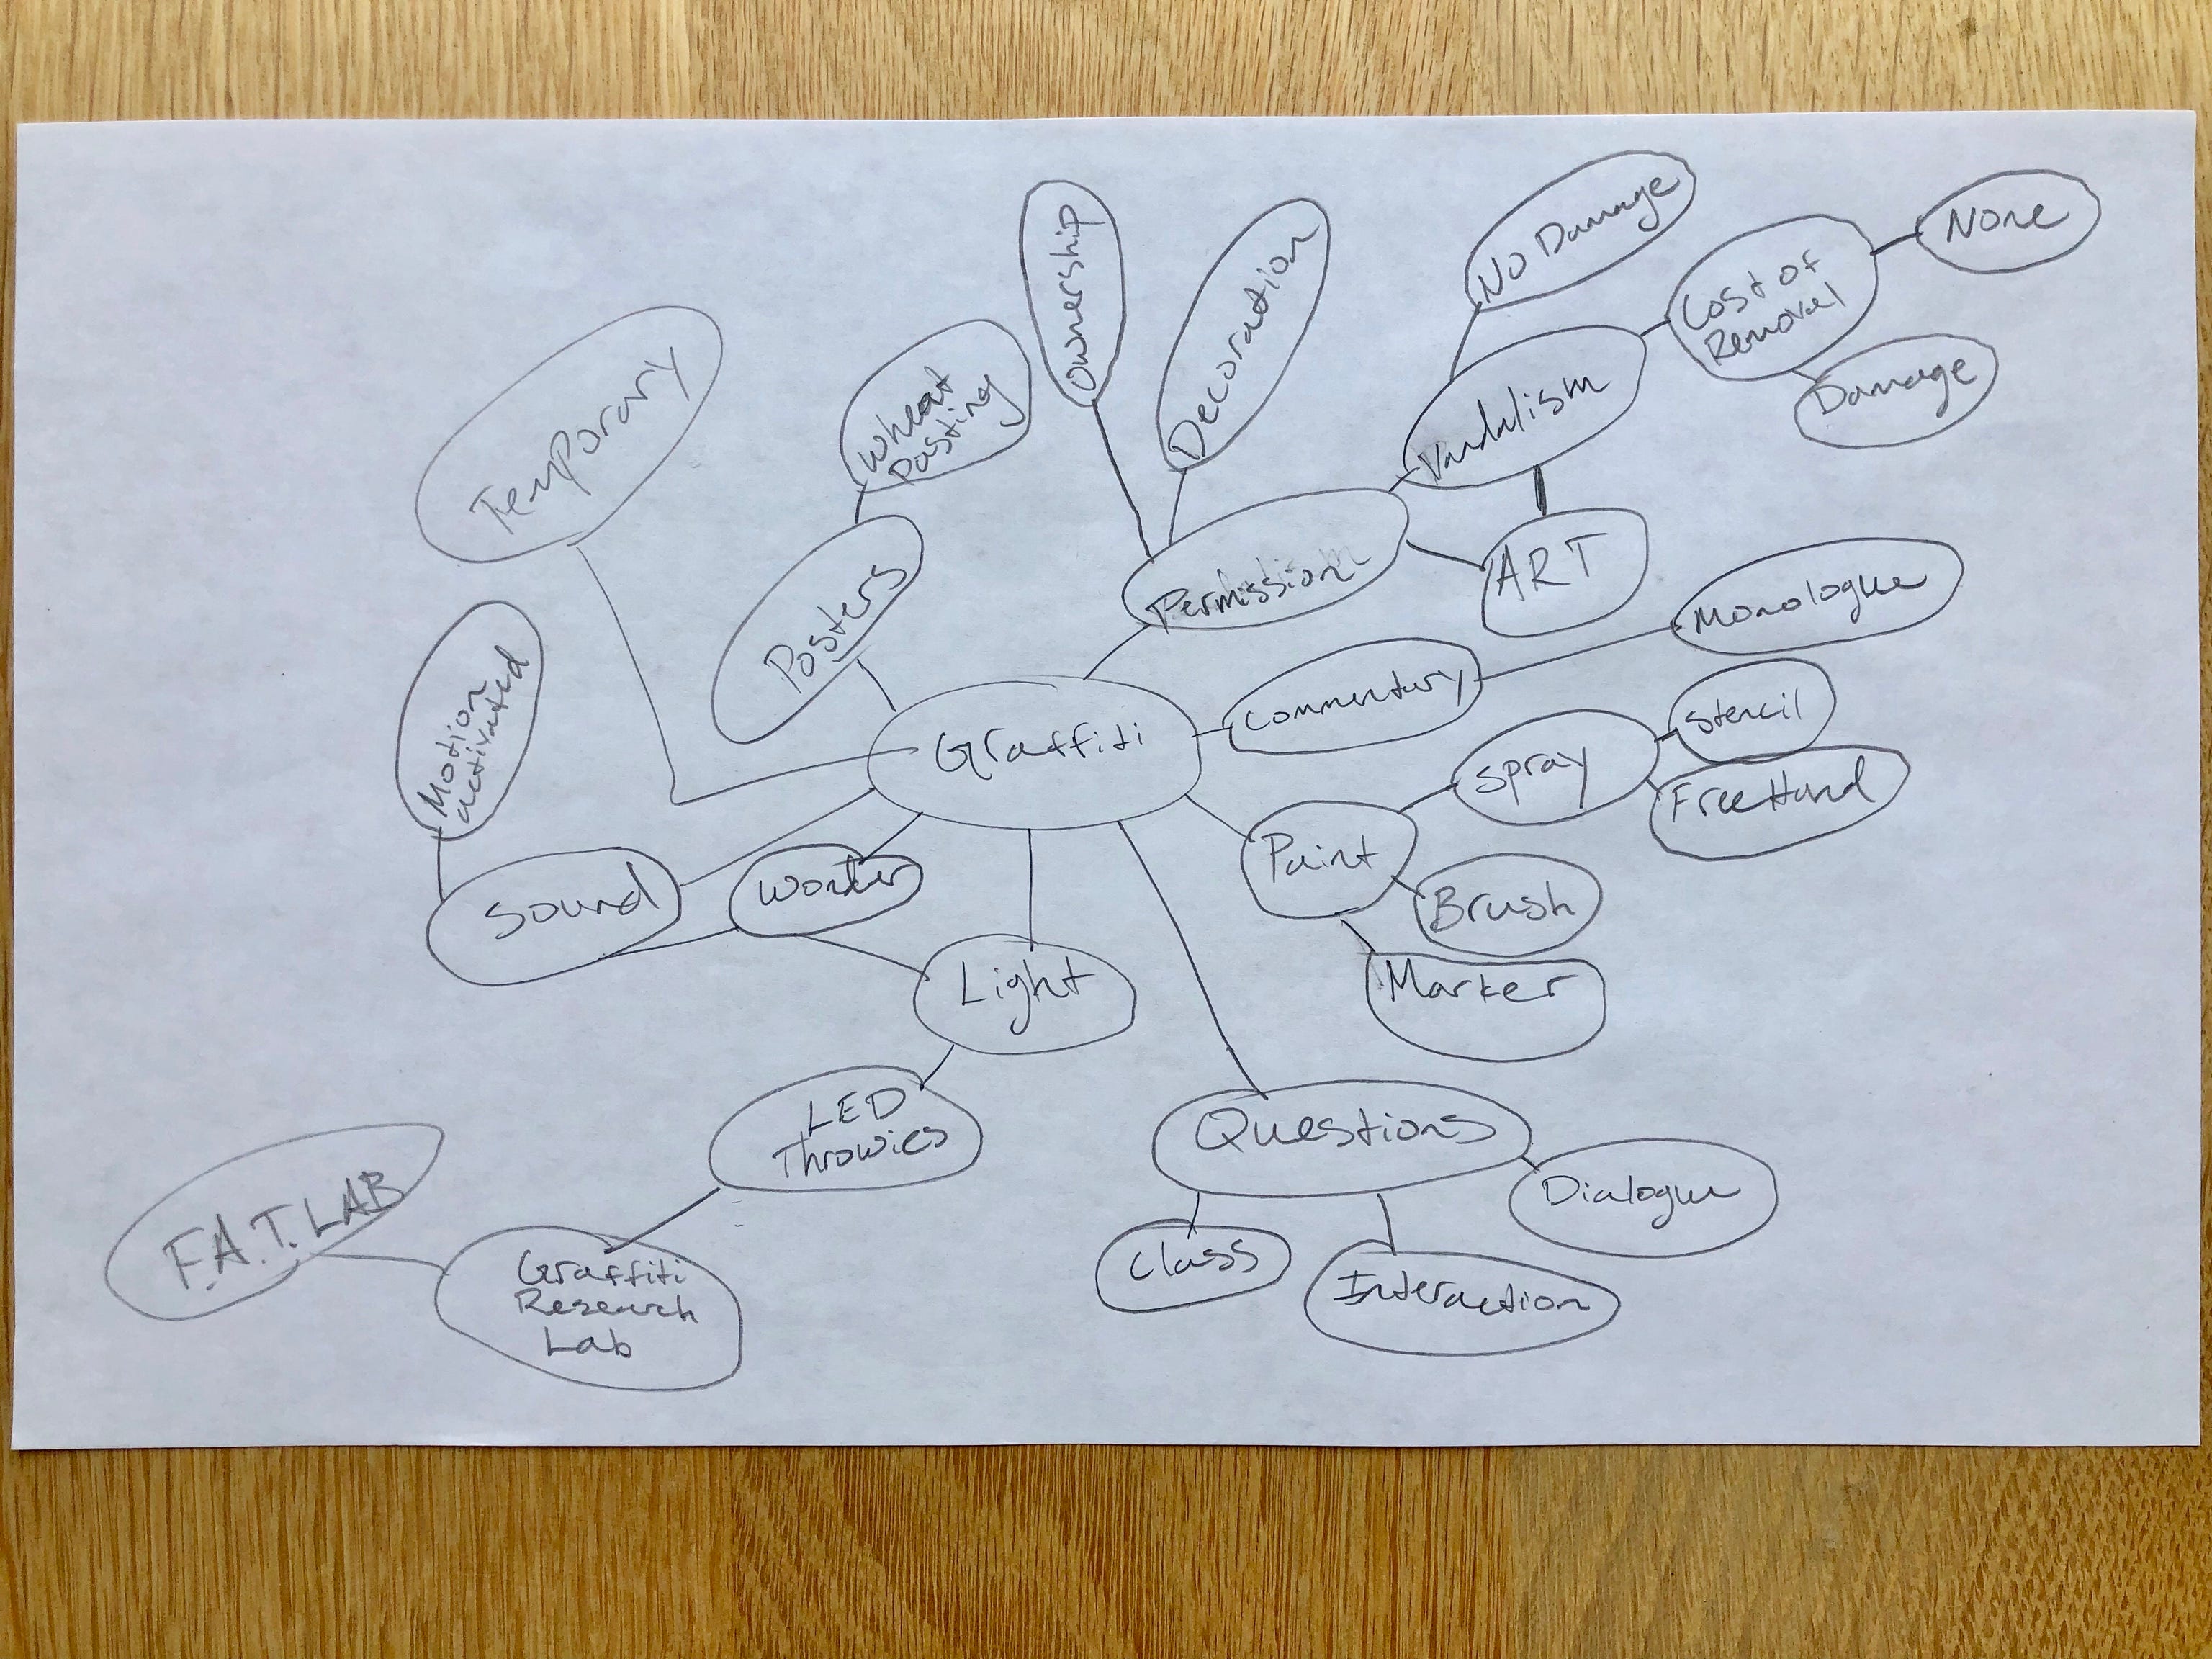 No Damage
None
Ownership
Decoration
Cost of
Removal
Temporary
Wheat
Pasting
Vandalism
Damage
Posters
Permission
ART
Monologue
Motion
activated
Commentary
Stencil
Graffiti
Spray
FreeHand
Sound
Paint
Brush
Light
Marker
LED
Throwies
Questions
F.A.T. LAB
Dialogue
Graffiti
Research
Lab
Class
Interaction